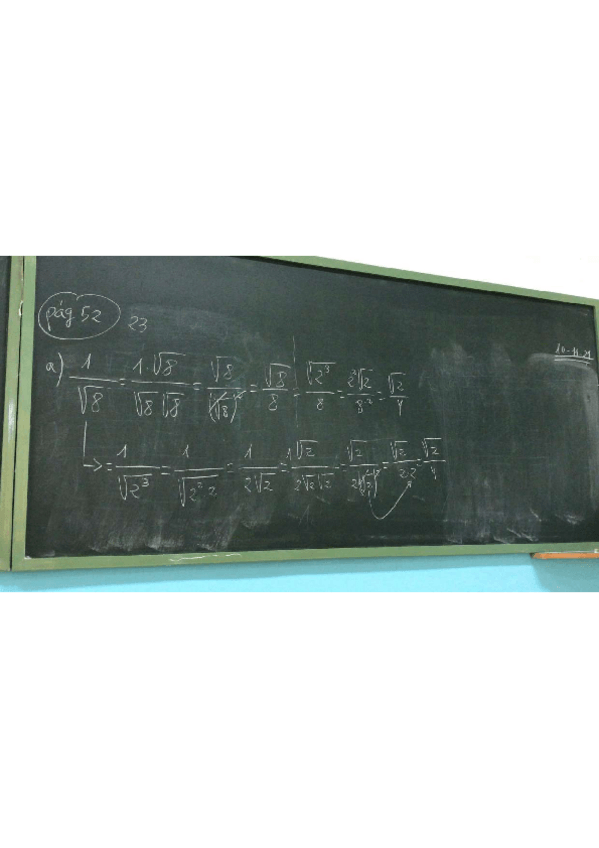 pág 52 23
10-11-21
a) 1/√8 = 1·√8/√8 √8 = √8/(√8)² = √8/8 = √2³/8 = 2√2/8 = √2/4
→ = 1/√2³ = 1/√2²·2 = 1/2√2 = 1√2/2√2√2 = √2/2(√2)² = √2/2·2 = √2/4